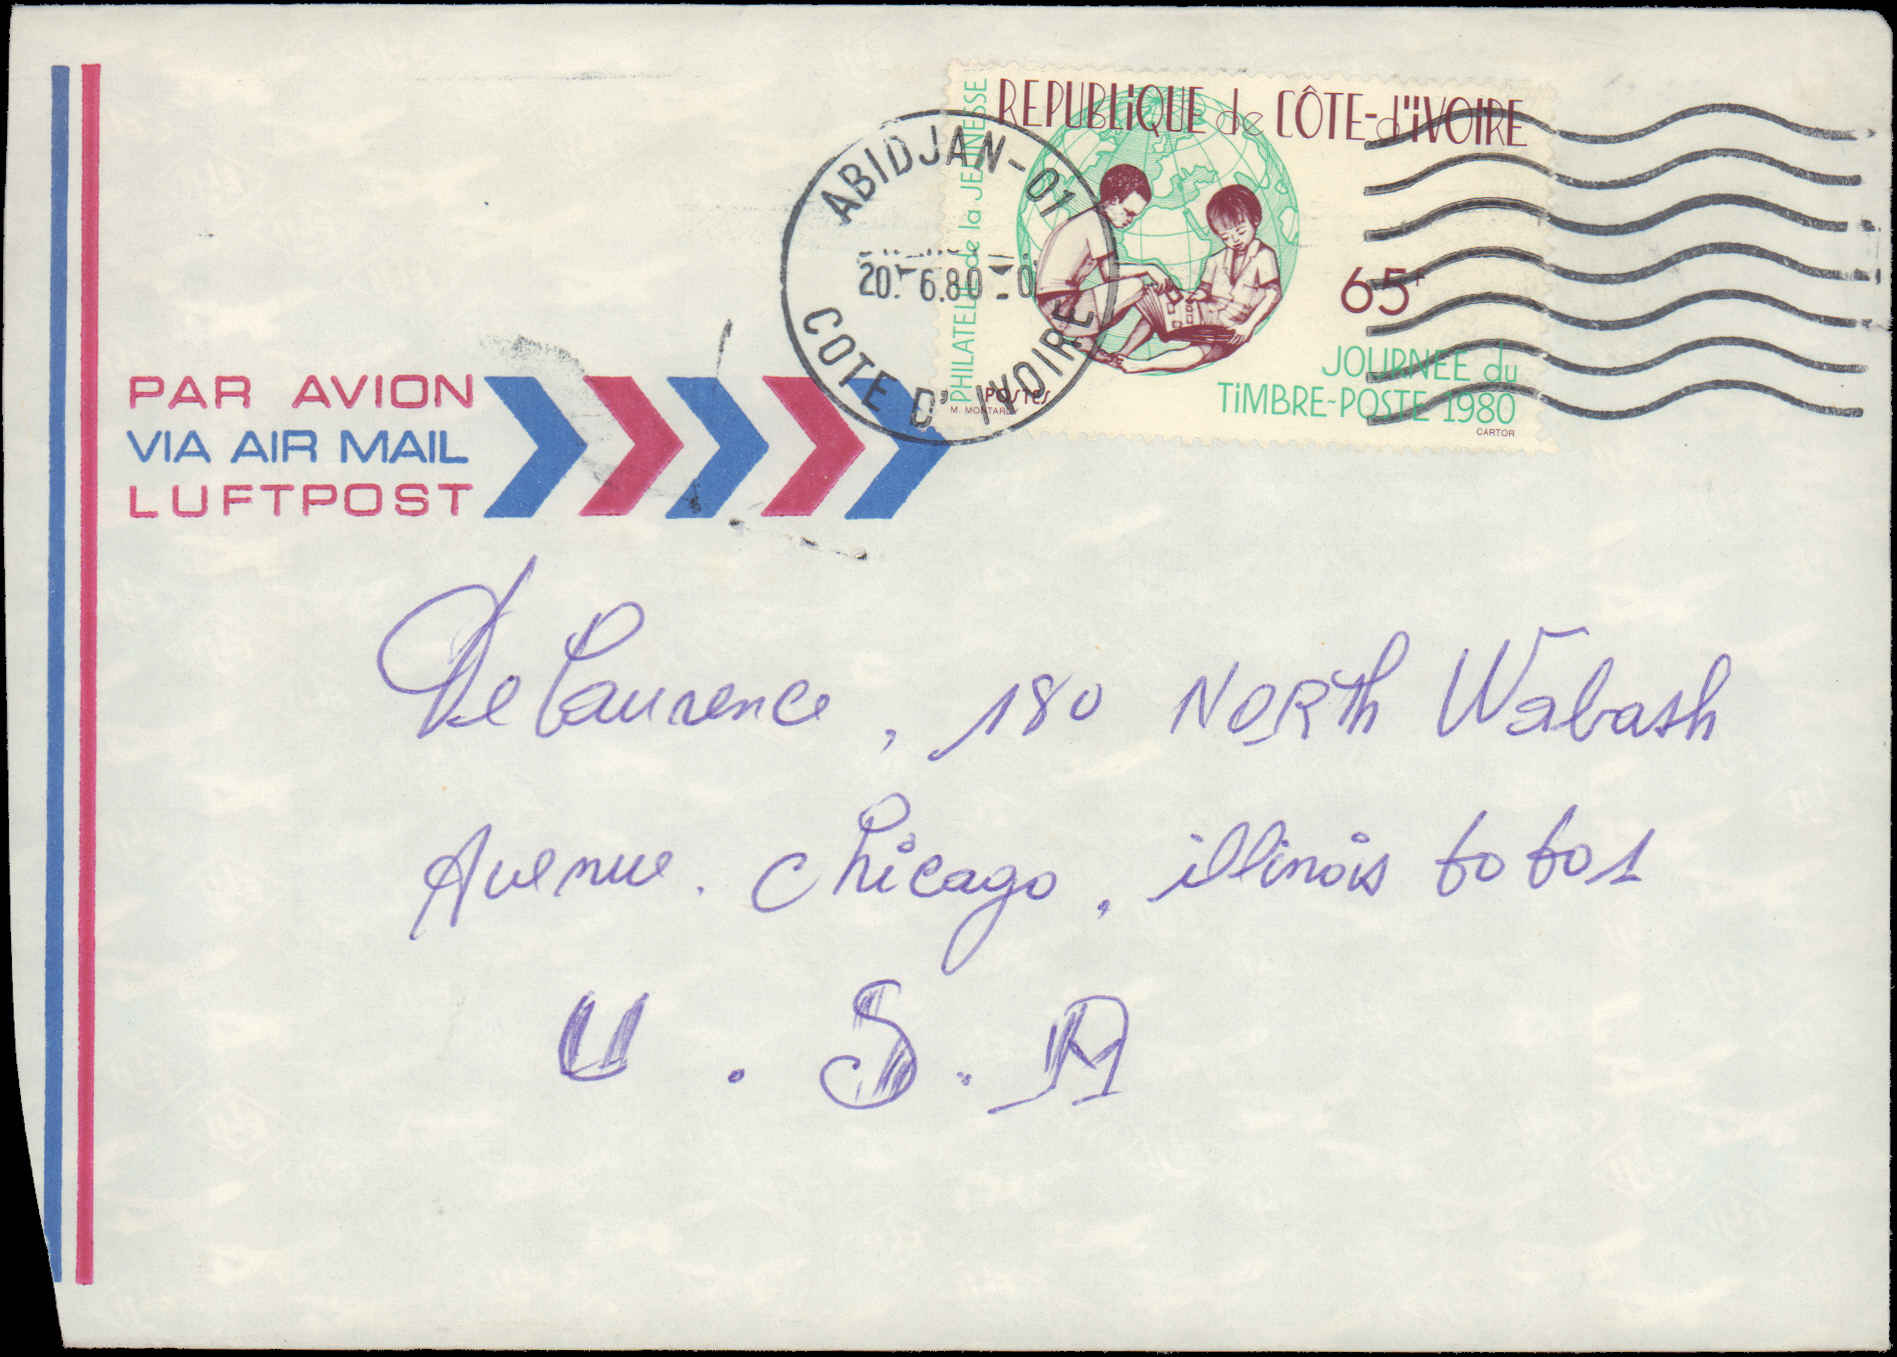 REPUBLiQUE de CÔTE-d'iVOIRE
PHILATELIE de la JEUNESSE
ABIDJAN-01
20. 6.80
COTE D'IVOIRE
65F
JOURNEE du
TiMBRE-POSTE 1980
POSTES
CARTOR
PAR AVION
VIA AIR MAIL
LUFTPOST
De Laurence, 180 NORTh Wabash
Avenue. Chicago, illinois 60601
U.S.A